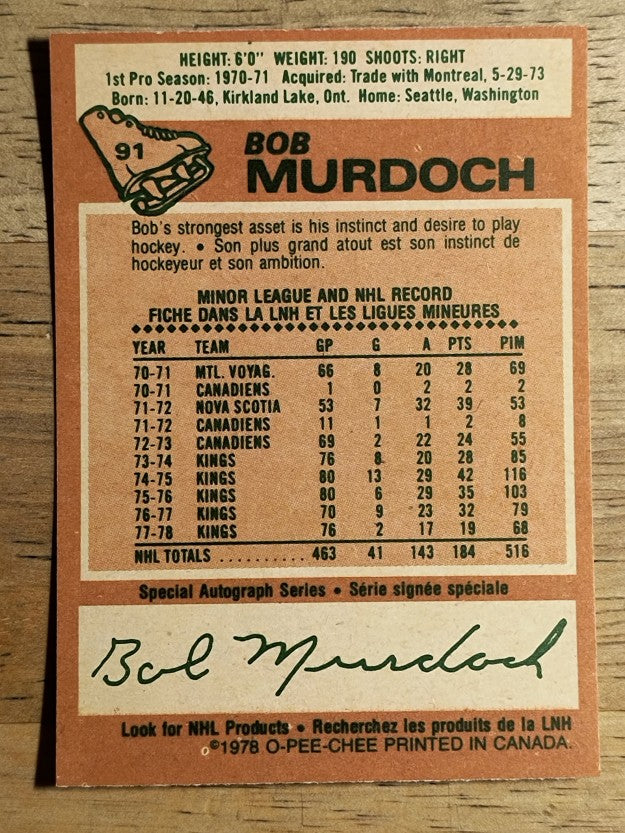 HEIGHT: 6'0" WEIGHT: 190 SHOOTS: RIGHT
1st Pro Season: 1970-71 Acquired: Trade with Montreal, 5-29-73
Born: 11-20-46, Kirkland Lake, Ont. Home: Seattle, Washington
91
BOB
MURDOCH
Bob's strongest asset is his instinct and desire to play
hockey. • Son plus grand atout est son instinct de
hockeyeur et son ambition.
MINOR LEAGUE AND NHL RECORD
FICHE DANS LA LNH ET LES LIGUES MINEURES
YEAR TEAM GP G A PTS PIM
70-71 MTL. VOYAG. 66 8 20 28 69
70-71 CANADIENS 1 0 2 2 2
71-72 NOVA SCOTIA 53 7 32 39 53
71-72 CANADIENS 11 1 1 2 8
72-73 CANADIENS 69 2 22 24 55
73-74 KINGS 76 8 20 28 85
74-75 KINGS 80 13 29 42 116
75-76 KINGS 80 6 29 35 103
76-77 KINGS 70 9 23 32 79
77-78 KINGS 76 2 17 19 68
NHL TOTALS .......... 463 41 143 184 516
Special Autograph Series • Série signée spéciale
Bob Murdoch
Look for NHL Products • Recherchez les produits de la LNH
©1978 O-PEE-CHEE PRINTED IN CANADA.